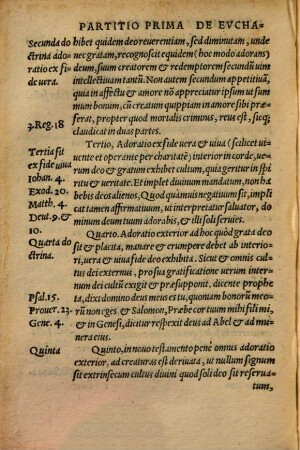 PARTITIO PRIMA DE EVCHA-
Secunda do
ctrina ado
ratio ex fi
de uera.
3. Reg. 18
Tertia sit
ex fide uiua
Iohan. 4.
Exod. 20.
Matth. 4.
Deut. 9. &
10.
Quarta do
ctrina.
Psal. 15.
Prouer. 23.
Gene. 4.
Quinta
hibet quidem deo reuerentiam, sed diminutam, unde
nec gratam, recognoscit equidem (hoc modo adorans)
deum, suum creatorem & redemptorem secundũ uim
intellectiuam tantũ. Non autem secundum appetitiuã,
quia in affectu & amore nõ appreciatur ipsum ut sum
mum bonum, cũ creatum quippiam in amore sibi præ
ferat, propter quod mortalis criminis, reus est, sicq;
claudicat in duas partes.
Tertio, Adoratio ex fide uera & uiua (scilicet ui
uente et operante per charitatẽ) interior in corde, ue-
rum deo & gratum exhibet cultum, quia in spi
ritu & ueritate. Et implet diuinum mandatum, non ha
bebis deos alienos, Quod quamuis negatiuum sit, impli
cat tamen affirmatiuum, ut interpretatur saluator, do
minum deum tuum adorabis, & illi soli seruies.
Quarto. Adoratio exterior ad hoc quod grata deo
sit & placita, manare & erumpere debet ab interi-
ori, uera & uiua fide deo exhibita. Sicut & omnis cul
tus dei externus, pro sua gratificatione uerum inter-
num dei cultũ exigit & præsupponit, dicente prophe
ta, dixi domino deus meus es tu, quoniam bonorũ meo-
rũ non eges, & Salomon, Præbe cor tuum mihi fili mi,
& in Genesi, dicitur respexit deus ad Abel & ad mu-
nera eius.
Quinto, in nouo testamento penè omnis adoratio
exterior, ad creaturas est deriuata, ut nullum signum
sit extrinsecum cultus diuini quod soli deo sit reserua-
tum,